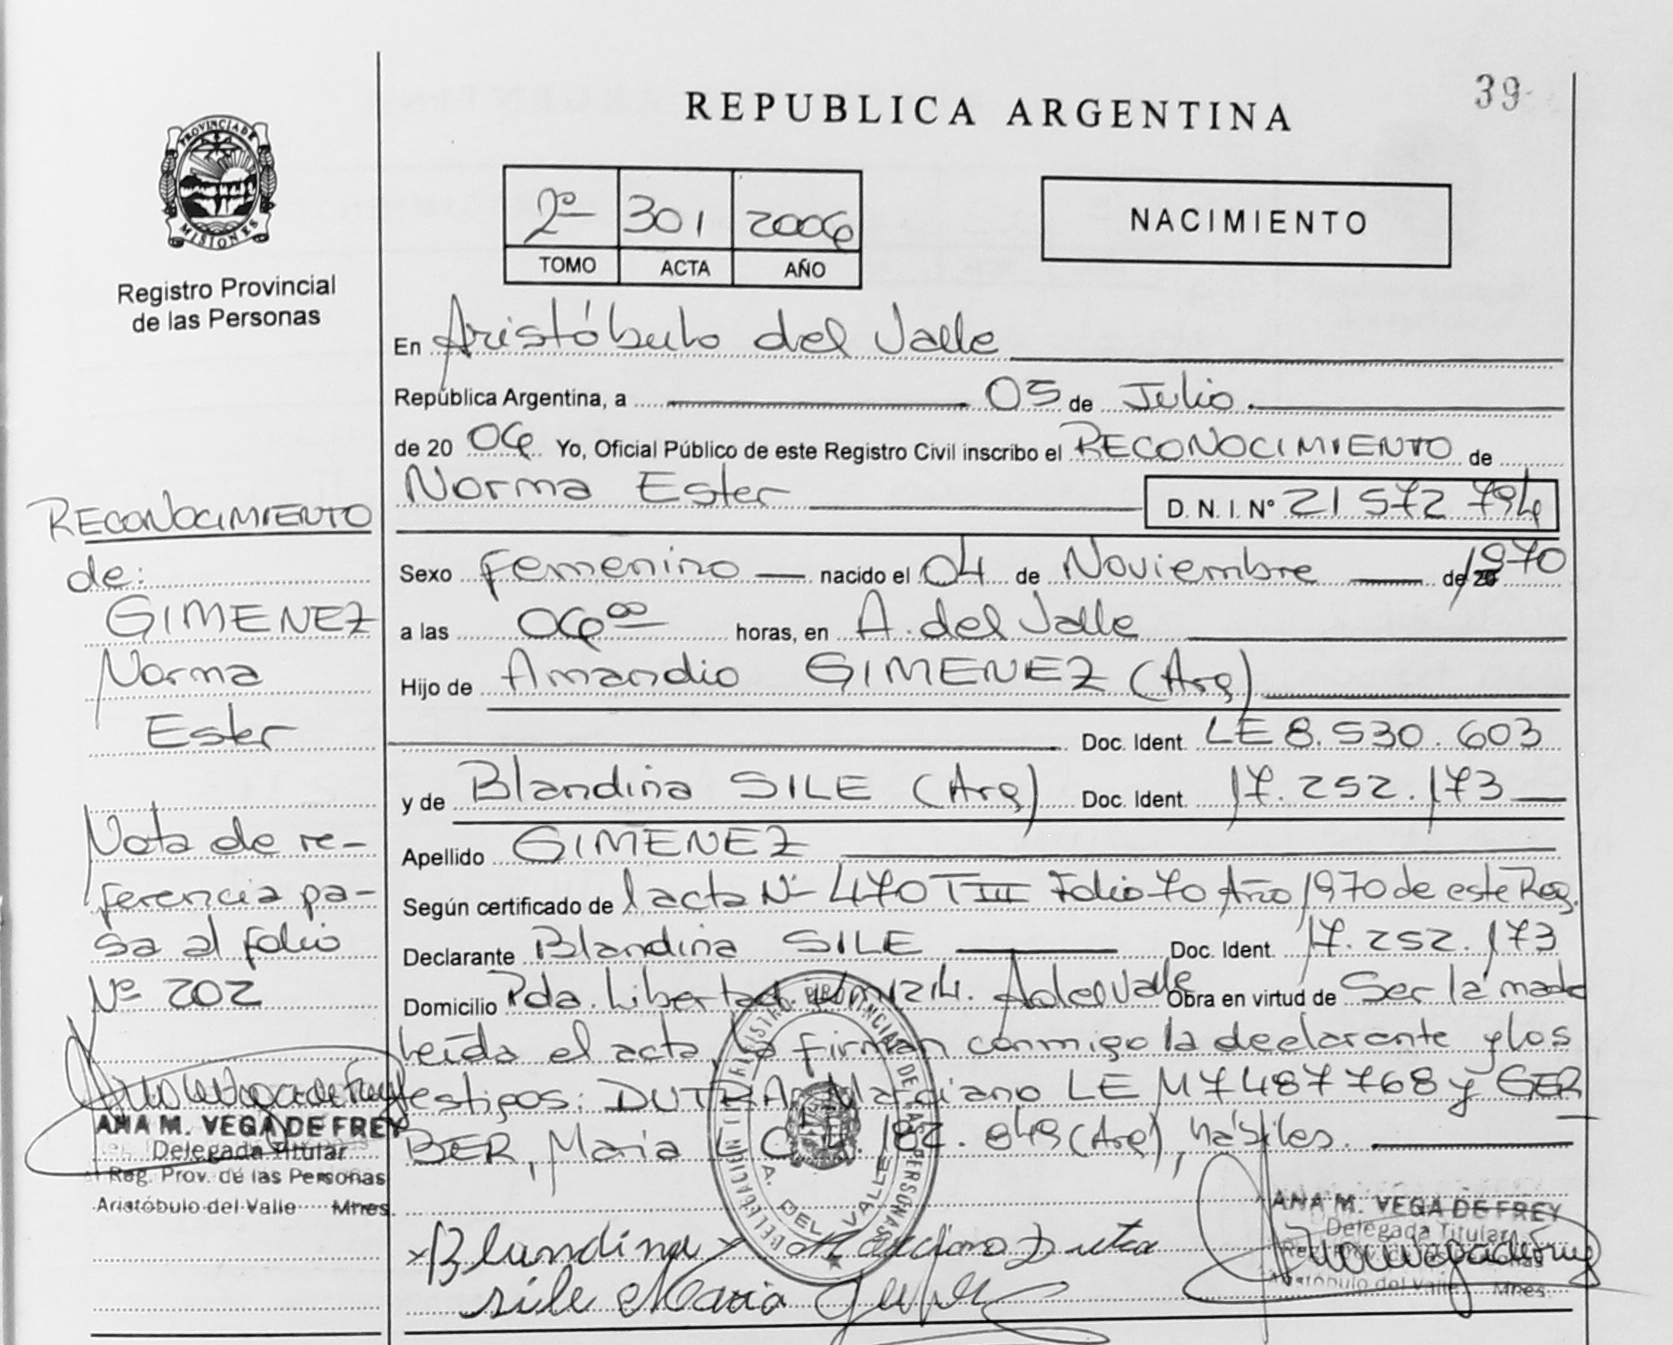 39
REPUBLICA ARGENTINA
PROVINCIA DE
MISIONES
Registro Provincial
de las Personas
2º 301 2006
TOMO ACTA AÑO
NACIMIENTO
En Aristóbulo del Valle
República Argentina, a 05 de Julio.
de 20 06 Yo, Oficial Público de este Registro Civil inscribo el RECONOCIMIENTO de
Norma Ester D. N. I. Nº 21 572 794
Sexo femenino nacido el 04 de Noviembre de 1970
a las 06 00 horas, en A. del Valle
Hijo de Amandio GIMENEZ (Arg)
Doc. Ident. LE 8.530.603
y de Blandina SILE (Arg) Doc. Ident. 17.252.173
Apellido GIMENEZ
Según certificado de l acta Nº 470 T III Folio 70 Año 1970 de este Reg.
Declarante Blandina SILE Doc. Ident. 17.252.173
Domicilio Pda. Libertad Km 1214. A del Valle Obra en virtud de Ser la madre
Leída el acta, la firman conmigo la declarante y los
testigos: DUTRA Marciano LE M 7487768 y GER
BER, Maria L C 4.182.849 (Arg), hábiles.
RECONOCIMIENTO
de:
GIMENEZ
Norma
Ester
Nota de re-
ferencia pa-
sa al folio
Nº 202
ANA M. VEGA DE FREY
Delegada Titular
Reg. Prov. de las Personas
Aristóbulo del Valle Mnes.
REGISTRO PROVINCIAL DE LAS PERSONAS
DELEGACION
A. DEL VALLE
x Blandina x Marciano Dutra
sile Maria
ANA M. VEGA DE FREY
Delegada Titular
Aristóbulo del Valle Mnes.